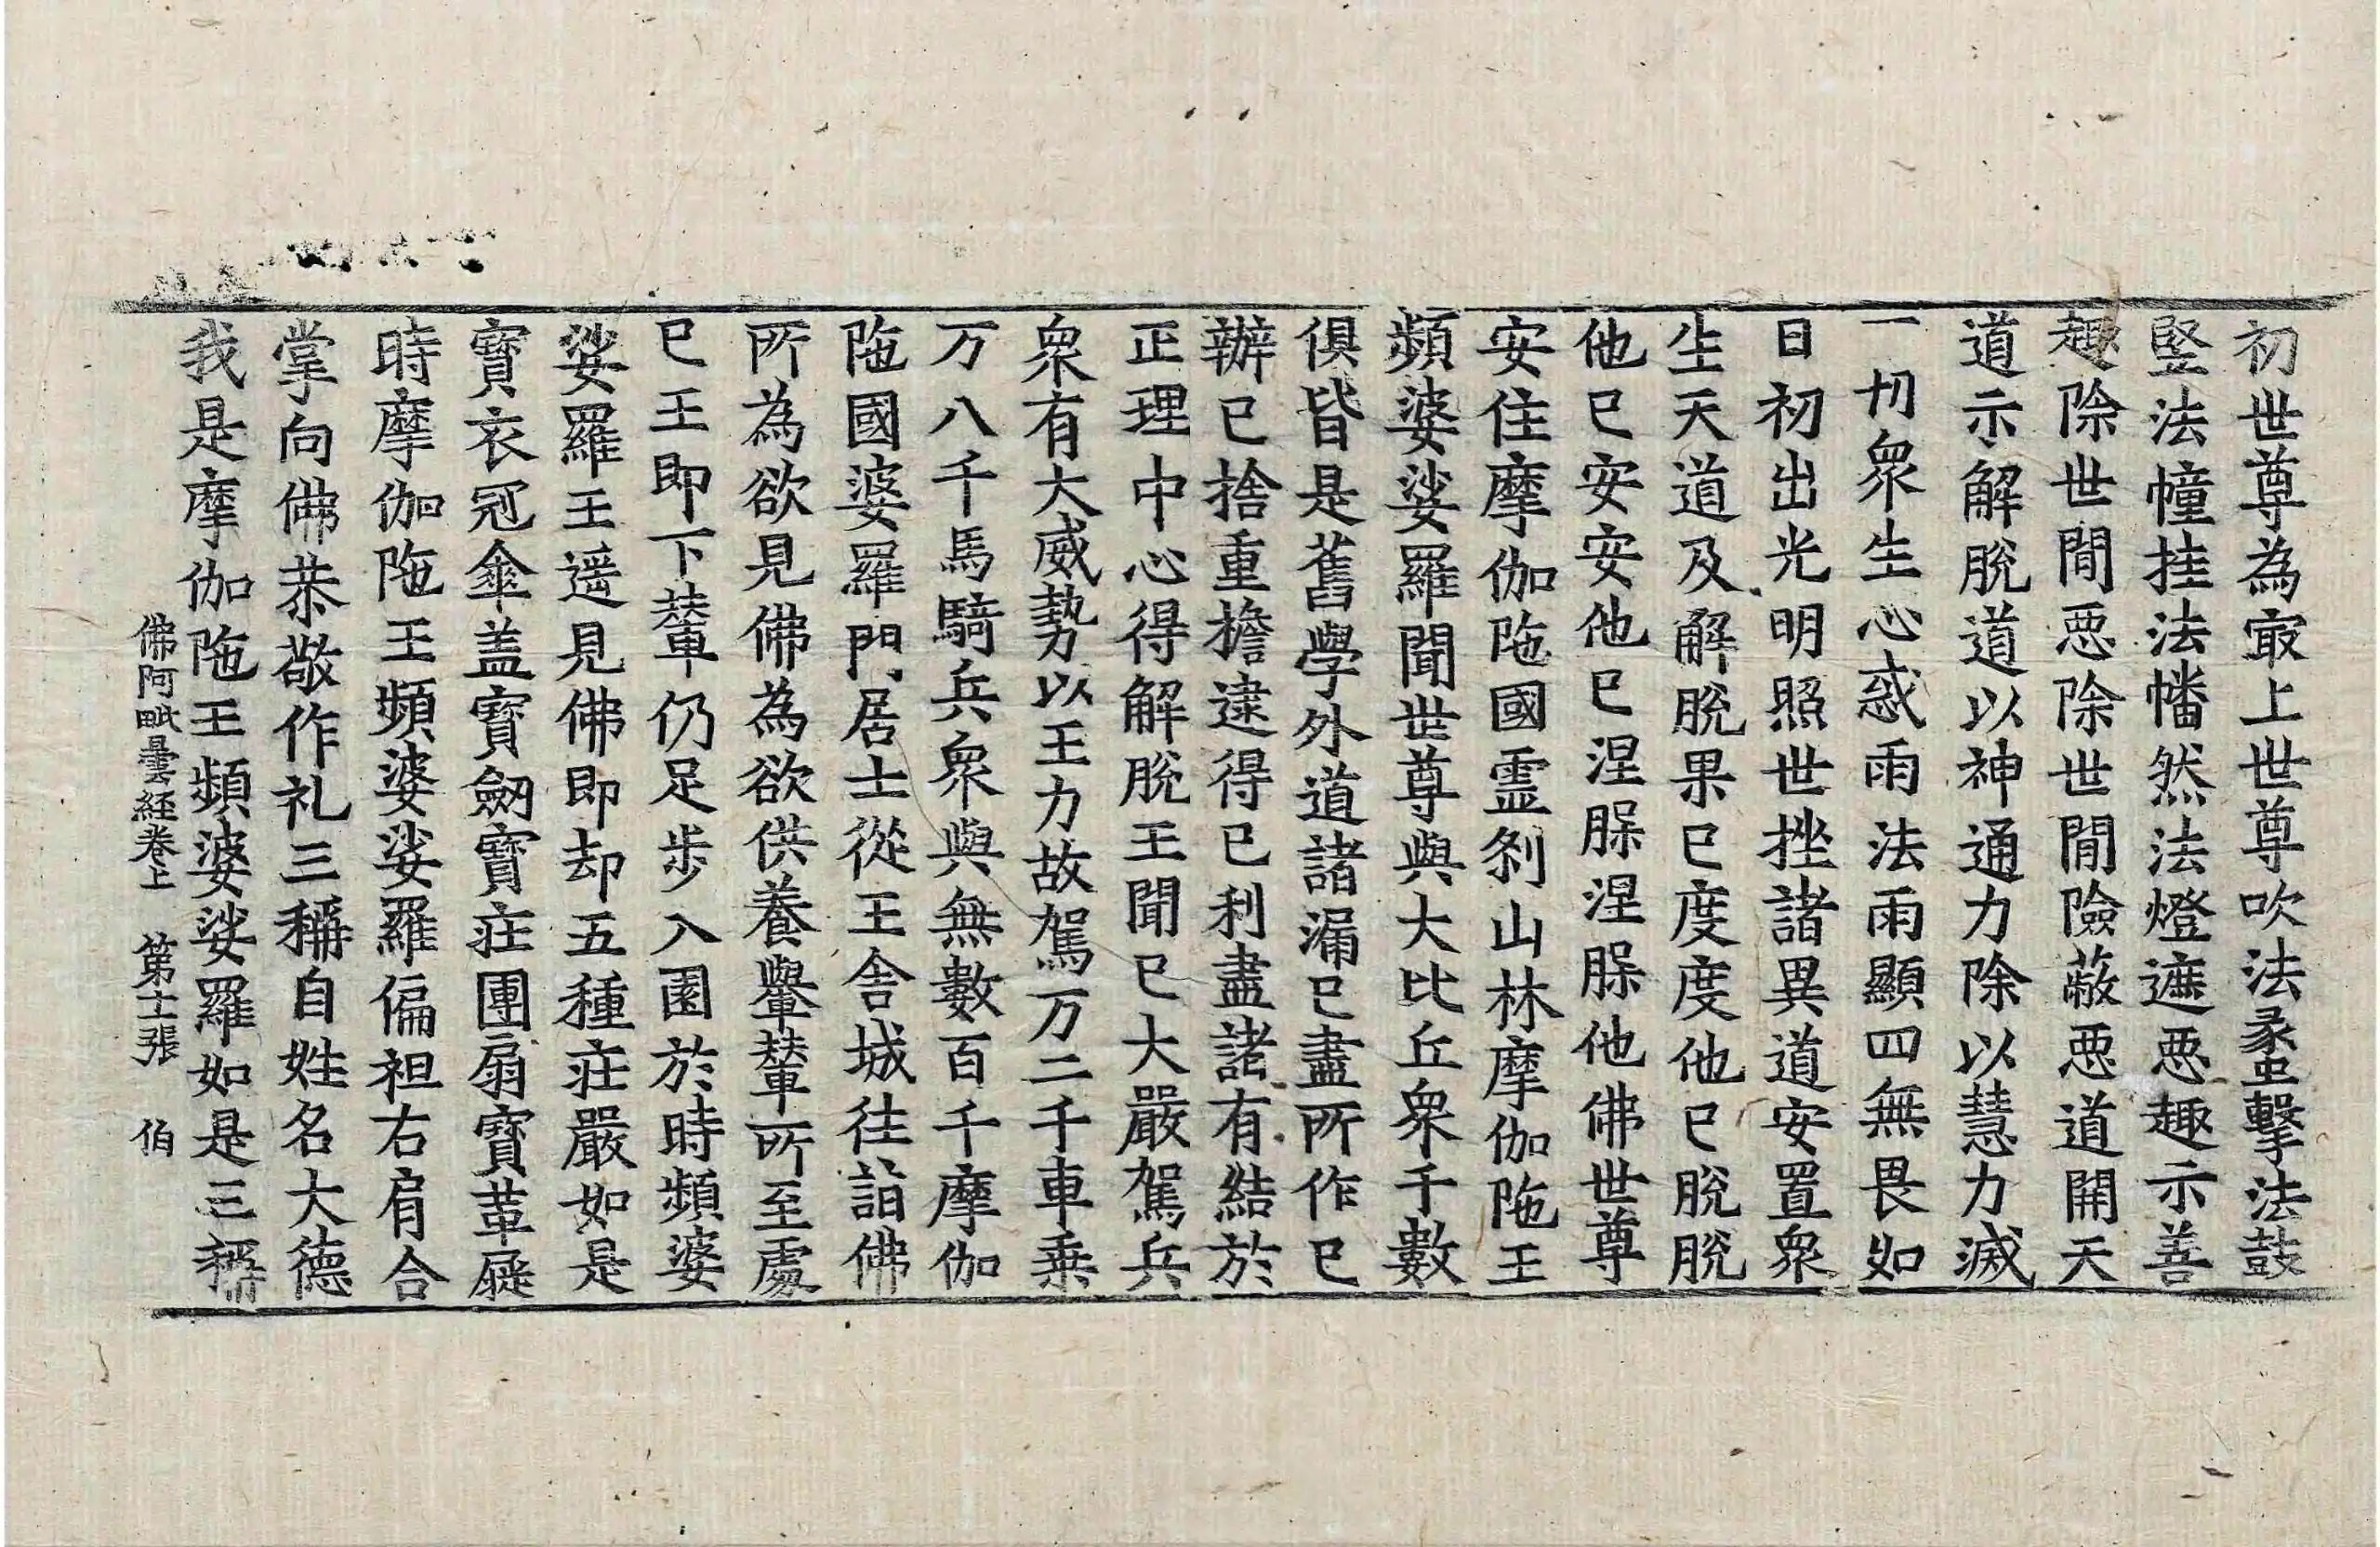 初世尊為㝡上世尊吹法蠡擊法鼓
竪法幢挂法幡然法燈遮惡趣示善
趣除世間惡除世間險蔽惡道開天
道示解脫道以神通力除以慧力滅
一切衆生心惑雨法雨顯四無畏如
日初出光明照世挫諸異道安置衆
生天道及解脫果已度度他已脫脫
他已安安他已涅膟涅膟他佛世尊
安住摩伽陁國霊剎山林摩伽陁王
頻婆娑羅聞世尊與大比丘衆千數
俱皆是舊學外道諸漏已盡所作已
辦已捨重擔逮得已利盡諸有結於
正理中心得解脫王聞已大嚴駕兵
衆有大威勢以王力故駕万二千車乗
万八千馬騎兵衆與無數百千摩伽
陁國婆羅門居士從王舍城往詣佛
所為欲見佛為欲供養轝輦所至處
已王即下輦仍足步入園於時頻婆
娑羅王遥見佛即却五種莊嚴如是
寶衣冠傘盖寶劒寶莊團扇寶革屣
時摩伽陁王頻婆娑羅偏袒右肩合
掌向佛恭敬作礼三稱自姓名大德
我是摩伽陁王頻婆娑羅如是三稱
佛阿毗曇経卷上　第十二張　伯